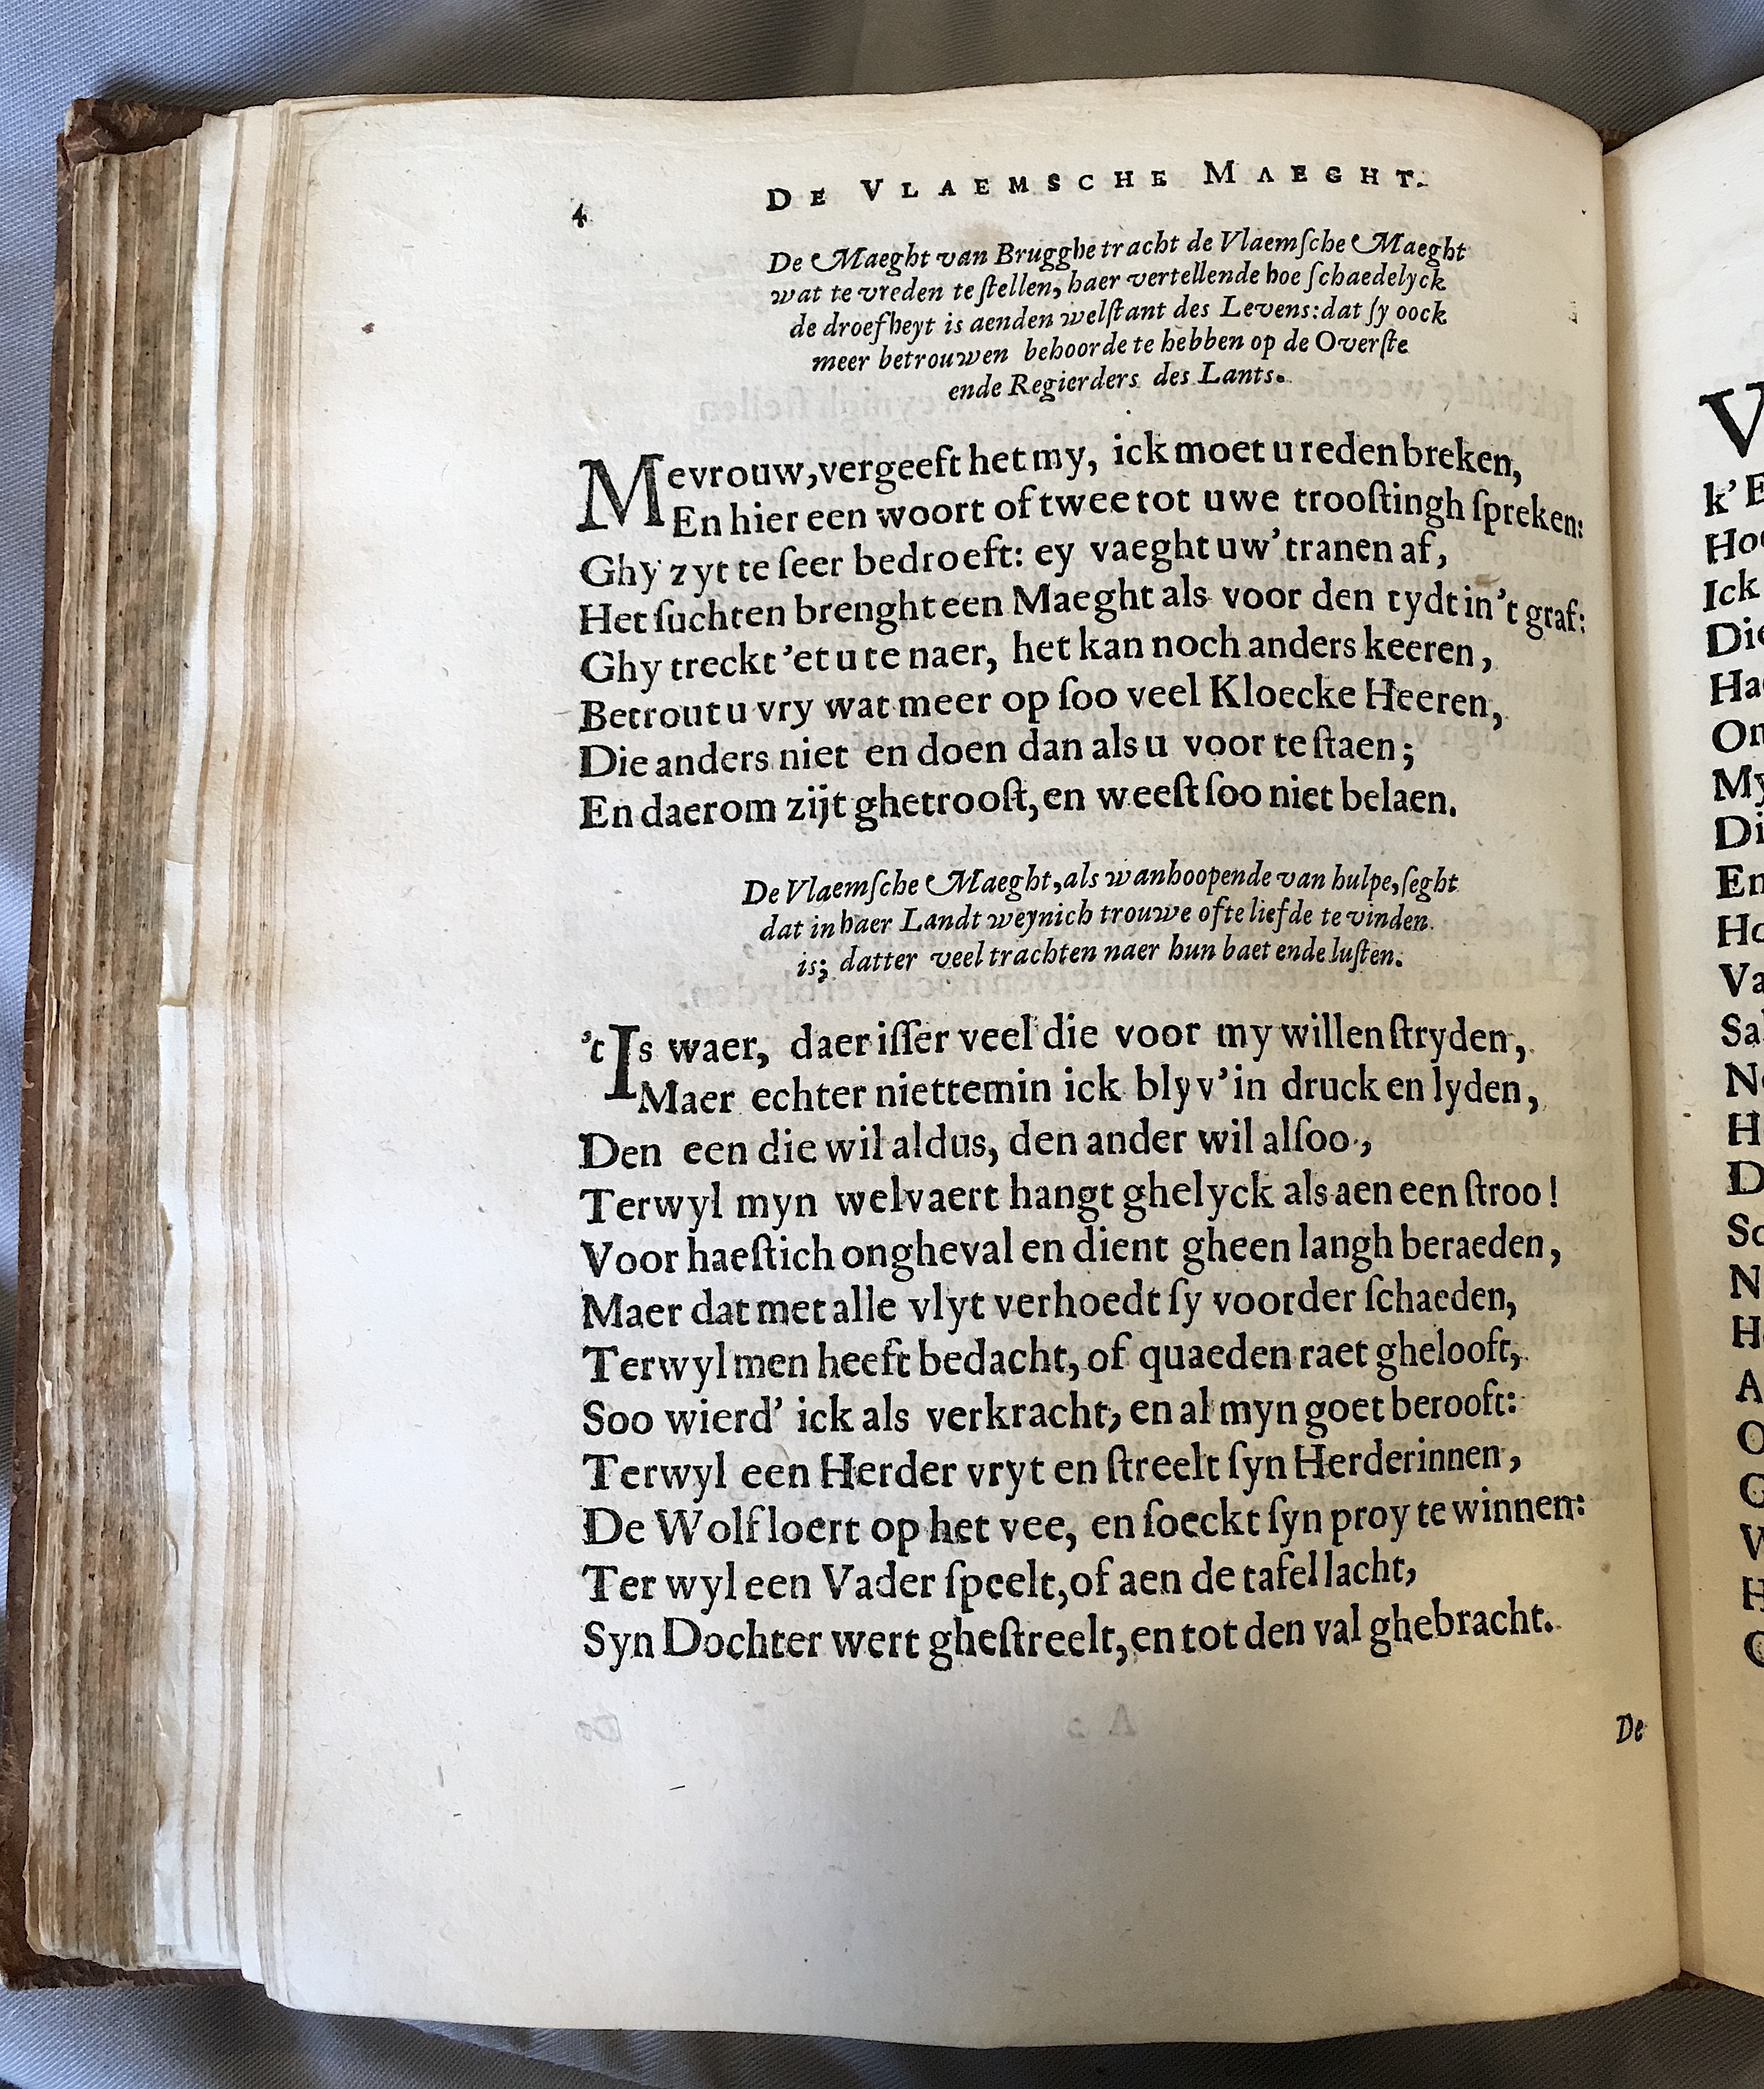 4 DE VLAEMSCHE MAEGHT.
De Maeght van Brugghe tracht de Vlaemſche Maeght
wat te vreden te ſtellen, haer vertellende hoe ſchaedelyck
de droefheyt is aenden welſtant des Levens: dat ſy oock
meer betrouwen behoorde te hebben op de Overſte
ende Regierders des Lants.
Mevrouw, vergeeft het my, ick moet u reden breken,
En hier een woort of twee tot uwe trooſtingh ſpreken:
Ghy zyt te ſeer bedroeft: ey vaeght uw' tranen af,
Het ſuchten brenght een Maeght als voor den tydt in 't graf:
Ghy treckt 'et u te naer, het kan noch anders keeren,
Betrout u vry wat meer op ſoo veel Kloecke Heeren,
Die anders niet en doen dan als u voor te ſtaen;
En daerom zijt ghetrooſt, en weeſt ſoo niet belaen.
De Vlaemſche Maeght, als wanhoopende van hulpe, ſeght
dat in haer Landt weynich trouwe ofte liefde te vinden
is; datter veel trachten naer hun baet ende luſten.
't Is waer, daer iſſer veel die voor my willen ſtryden,
Maer echter niettemin ick blyv' in druck en lyden,
Den een die wil aldus, den ander wil alſoo,
Terwyl myn welvaert hangt ghelyck als aen een ſtroo!
Voor haeſtich ongheval en dient gheen langh beraeden,
Maer dat met alle vlyt verhoedt ſy voorder ſchaeden,
Terwyl men heeft bedacht, of quaeden raet ghelooft,
Soo wierd' ick als verkracht, en al myn goet berooft:
Terwyl een Herder vryt en ſtreelt ſyn Herderinnen,
De Wolf loert op het vee, en ſoeckt ſyn proy te winnen:
Ter wyl een Vader ſpeelt, of aen de tafel lacht,
Syn Dochter wert gheſtreelt, en tot den val ghebracht.
De
V
k' E
Hoe
Ick
Die
Ha
On
My
Di
En
Ho
Va
Sa
N
H
D
So
N
H
A
O
G
V
H